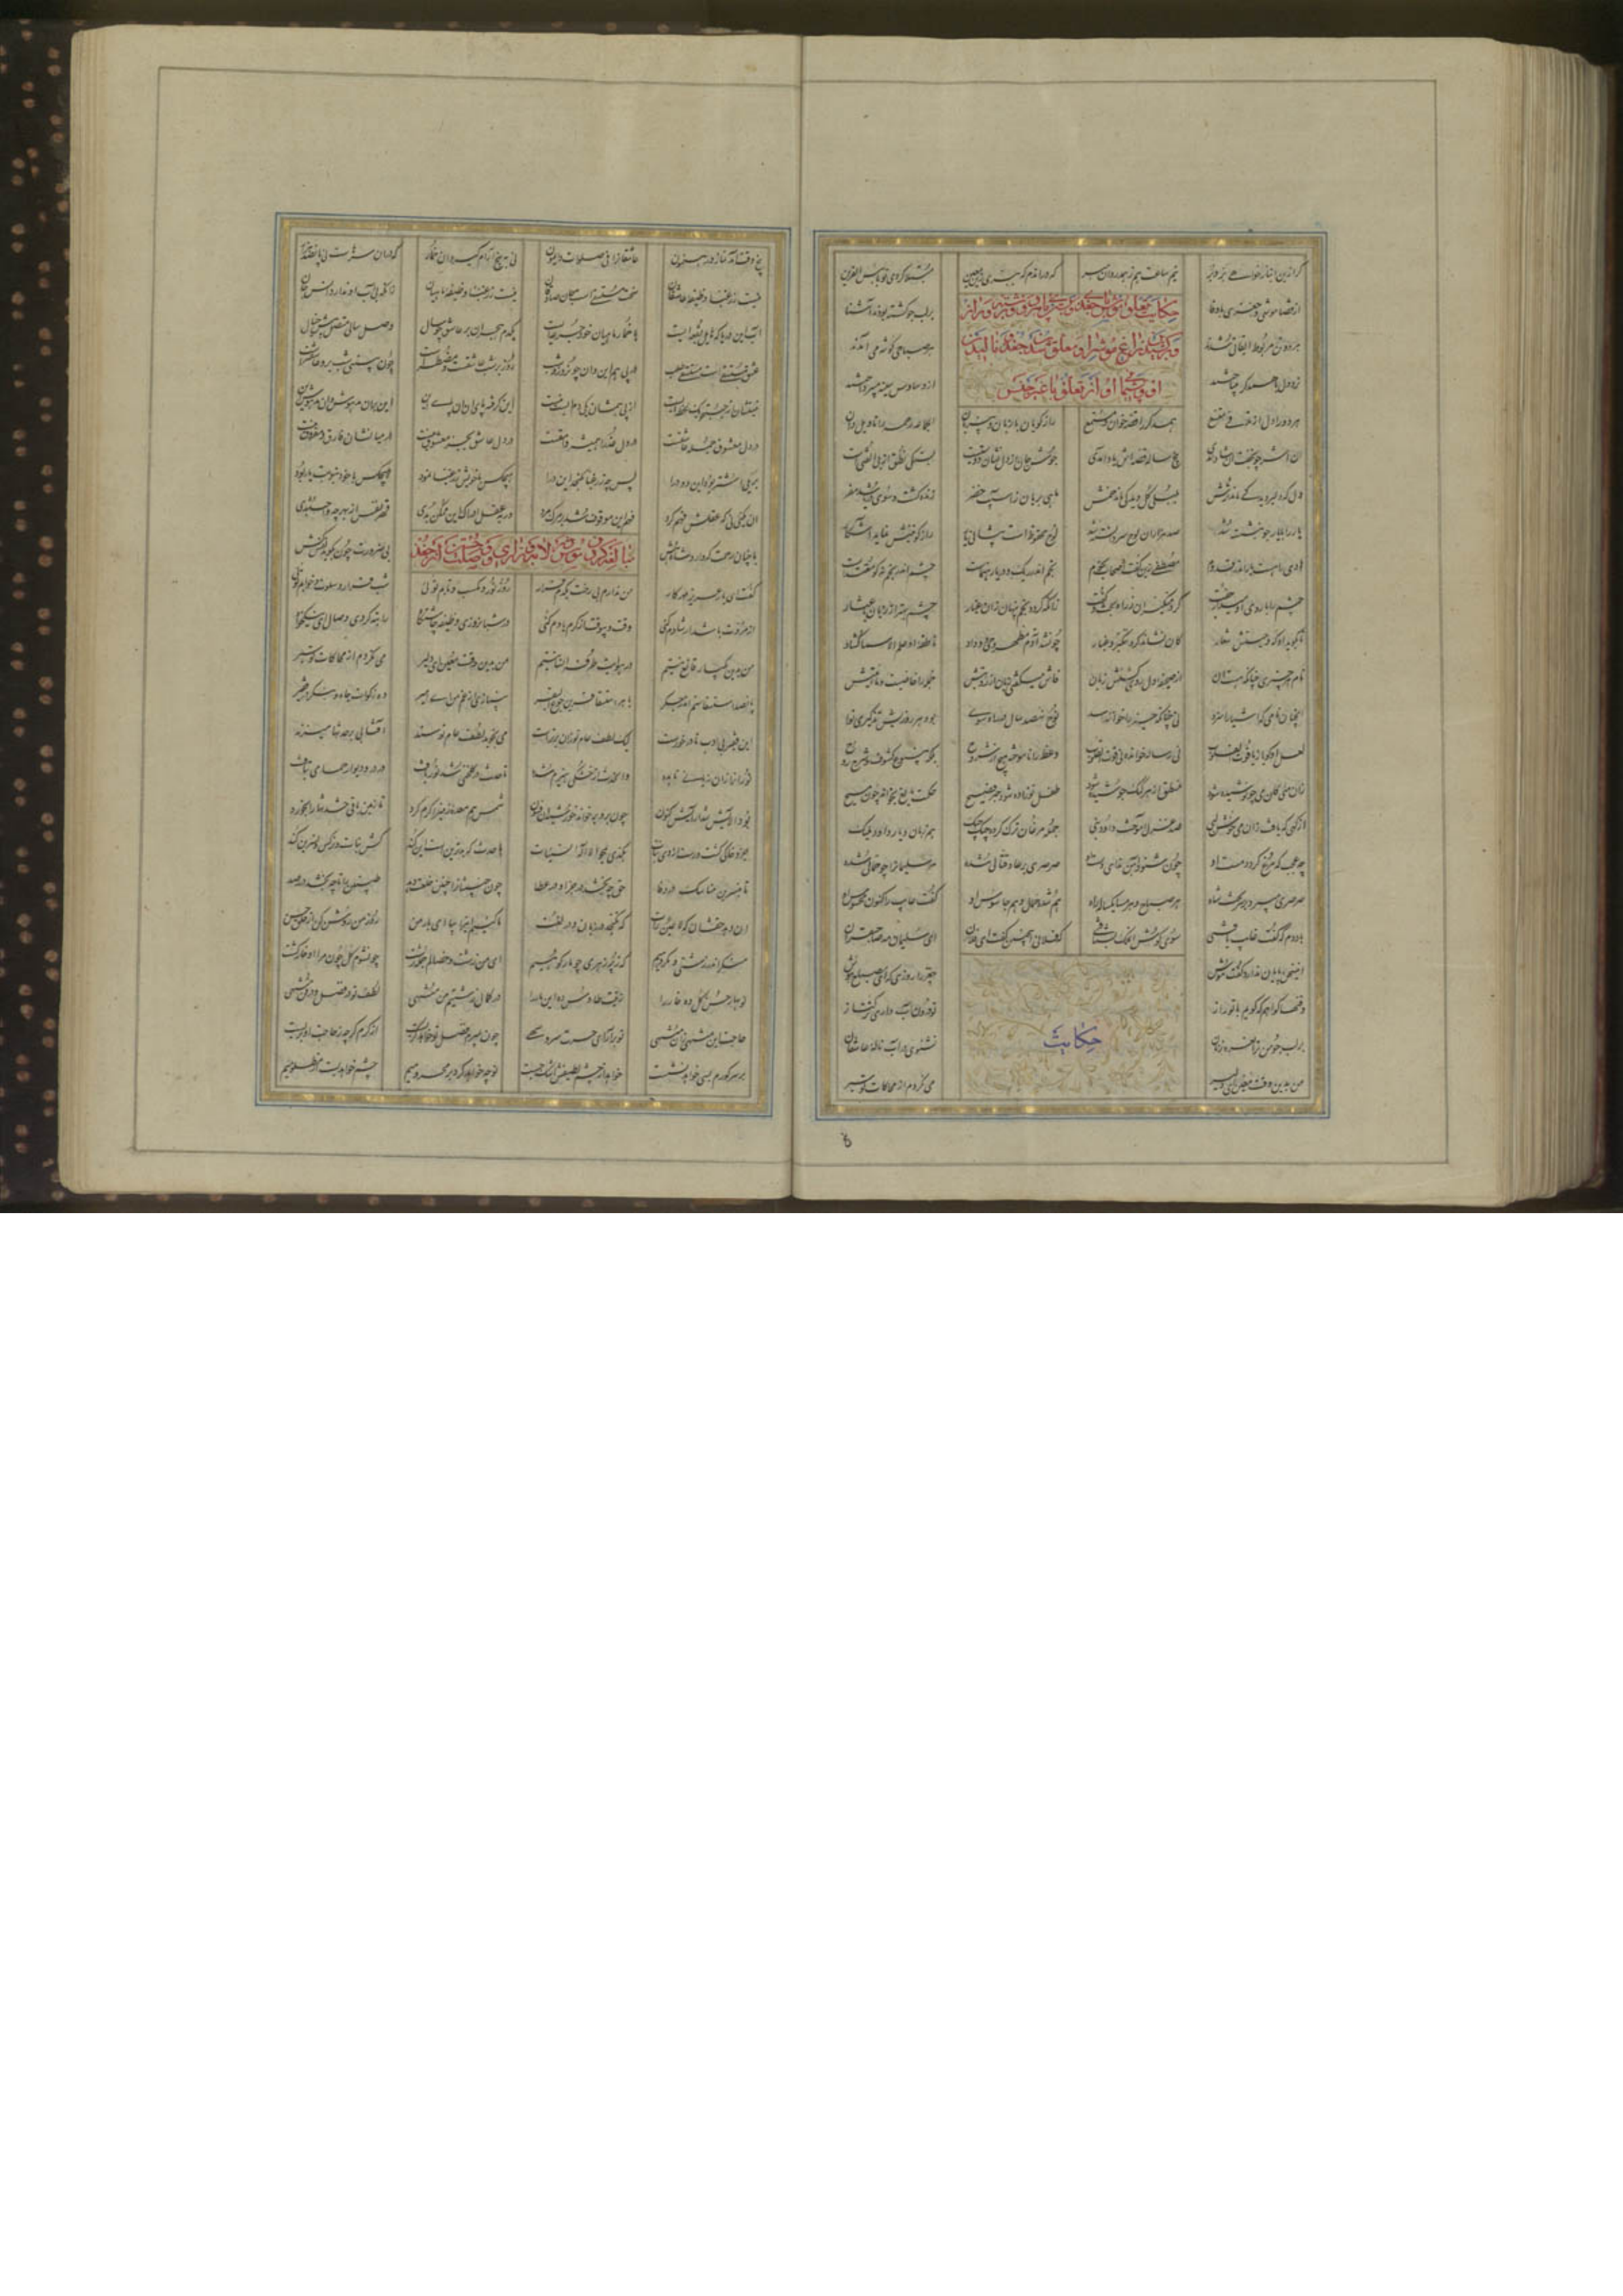 گر ازین انبار خواهی بر و بر نیم ساعت هم ز همدردان مبر که در آن دم که ببری زین معین مبتلا گردی تو با بئس القرین
حکایت تعلق موش با چغز و بستن پای هر دو برشته دراز
و برکشیدن زاغ موش را و معلق شدن چغز و نالیدن
او و پشیمانی او از تعلق با غیر جنس
از قضا موشی و چغزی با وفا بر لب جو گشته بودند آشنا
هر دو تن مربوط میقاتی شدند هر صباحی گوشه می آمدند
نرد دل با همدگر می باختند از وساوس سینه می پرداختند
هر دو را دل از تلاقی متسع همدگر را قصه خوان و مستمع رازگویان با زبان و بی زبان الجماعه رحمه را تاویل دان
آن اشر چون جفت آن شاد آمدی پنج ساله قصه اش یاد آمدی جوش از دل نشان دوستیست بستگی نطق از بی الفتیست
دل که دلبر دید کی ماند ترش بلبلی گل دید کی ماند خمش ماهی بریان ز آسیب خضر زنده گشت و سوی دریا شد مفر
یار را با یار چون بنشسته شد صد هزاران لوح سر دانسته شد لوح محفوظ است پیشانی یار راز کونینش نماید آشکار
هادی راهست یار اندر قدوم مصطفی زین گفت اصحابی نجوم نجم اندر ریک و دریا رهنماست چشم اندر نجم نه کو مقتداست
چشم را با روی او می دار جفت گرد منگیزان ز راه بحث و گفت زانکه گردد نجم پنهان زان غبار چشم بهتر از زبان با عثار
تا بگوید او که وحیستش شعار کان نشاند گرد و ننگیزد غبار چون شد آدم مظهر وحی و وداد ناطقه او علم الاسما گشاد
نام هر چیزی چنانکه هست آن از صحیفه دل روی گشتش زبان فاش میگفتی زبان از رویتش جمله را خاصیت و ماهیتش
آنچنان نامی که اشیا را سزد نی چنانکه حیز را خواند اسد نوح نهصد سال در راه سوی بود هر روزیش تذکیر نوی
لعل او گویا ز یاقوت القلوب نی رساله خوانده نی قوت القلوب وعظ را ناموخته هیچ از شروح بلکه ینبوع کشوف و شرح روح
زان میی کان می چو نوشیده شود آب نطق از گنگ جوشیده شود طفل نوزاده شود حبر فصیح حکمت بالغ بخواند چون مسیح
از کهی که یافت زان می خوش لبی صد غزل آموخت داود نبی جمله مرغان ترک کرده چیک چیک هم زبان و یار داود ملیک
چه عجب که مرغ گردد مست او چون شنود آهن ندای دست او صرصری بر عاد قتالی شده مر سلیمان را چو حمالی شده
صرصری می برد بر سر تخت شاه هر صباح و هر مسا یک ماهه راه هم شده حمال و هم جاسوس او گفت غایب را کنون محسوس او
باد دم که گفت غایب یافتی سوی گوش آن ملک بشتافتی که فلانی این چنین گفت این زمان ای سلیمان مه صاحب قران
این سخن پایان ندارد گفت موش چغز را روزی که ای مصباح هوش
وقتها خواهم که گویم با تو راز تو درون آب داری ترک تاز
حکایت
بر لب جو من ترا نعره زنان نشنوی در آب ناله عاشقان
من بدین وقت معین ای دلیر می نگردم از محاکات تو سیر
پنج وقت آمد نماز و رهنمون عاشقان را فی صلاة دائمون نی به پنج آرام گیرد آن خمار که در آن سرهاست نی پانصد هزار
نیست زر غبا وظیفه عاشقان سخت مستسقیست جان صادقان نیست زر غبا وظیفه ماهیان زانکه بی دریا ندارند انس جان
آب این دریا که هایل بقعه ایست با خمار ماهیان خود جرعه ایست یکدم هجران بر عاشق چو سال وصل سالی متصل پیشش خیال
عشق مستسقیست مستسقی طلب در پی هم این و آن چون روز و شب روز بر شب عاشقست و مضطرست چون ببینی شب برو عاشق ترست
نیستشان از جست و جو یک لحظه ایست از پی همشان یکی دم ایست نیست این گرفته پای آن آن گوش این این بر آن مدهوش و آن بی هوش این
در دل معشوق جمله عاشقست در دل عذرا همیشه وامقست در دل عاشق بجز معشوق نیست در میانشان فارق و فاروق نیست
بر یکی اشتر بود این دو درا پس چه زر غبا بگنجد این دو را هیچکس با خویش زر غبا نمود هیچکس با خود بنوبت یار بود
آن یکیی نی که عقلش فهم کرد فهم این موقوف شد بر مرگ مرد ور به عقل ادراک این ممکن بدی قهر نفس از بهر چه واجب شدی
با چنان رحمت که دارد شاه هش بی ضرورت چون بگوید نفس کش
مبالغه کردن موش در لابه و زاری و وصلت جستن از چغز
گفت ای یار عزیز مهرکار من ندارم بی رخت یکدم قرار روز نور و مکسب و تابم توئی شب قرار و سلوت و خوابم توئی
از مروت باشد ار شادم کنی وقت و بی وقت از کرم یادم کنی در شبانروزی وظیفه چاشتگاه راتبه کردی وصال ای نیک خواه
من بدین یکبار قانع نیستم در هوایت طرفه انسانیستم من بدین وقت معین ای دلیر می نگردم از محاکات تو سیر
پانصد استسقاستم اندر جگر با هر استسقا قرین جوع البقر بی نیازی از غم من ای امیر ده زکات جاه و بنگر در فقیر
این فقیر بی ادب نا درخورست لیک لطف عام تو زان برترست می نجوید لطف عام تو سند آفتابی بر حدثها می زند
نور او را زان زیانی نابده وان حدث از خشکیی هیزم شده تا حدث در گلخنی شد نور یافت در در و دیوار حمامی بتافت
بود آلایش شد آرایش کنون چون برو بر خواند خورشید آن فسون شمس هم معده زمین را گرم کرد تا زمین باقی حدثها را بخورد
جزو خاکی گشت و رست از وی نبات هکذی یمحو الاله السیئات با حدث که بدترین است این کند کش نبات و نرگس و نسرین کند
تا به نسرین مناسک در وفا حق چه بخشد در جزا و در عطا چون خبیثان را چنین خلعت دهد طیبین را تا چه بخشد در رصد
آن دهد حقشان که لا عین رات که نگنجد در زبان و در لغت ما کییم این را بیا ای یار من روز من روشن کن از خلق حسن
منگر اندر زشتی و مکروهیم که ز پر زهری چو مار کوهیم ای که من زشت و خصالم جمله زشت چون شوم گل چون مرا او خار کشت
نوبهارا حسن گل ده خار را زینت طاوس ده این مار را در کمال زشتیم من منتهی لطف تو در فضل و در فن منتهی
حاجت این منتهی زان منتهی تو بر آر ای حسرت سرو سهی چون بمیرم فضل تو خواهد گریست از کرم گرچه ز حاجت او بریست
بر سر گورم بسی خواهد نشست خواهد از چشم لطیفش اشک جست نوحه خواهد کرد بر محرومیم چشم خواهد بست از مظلومیم